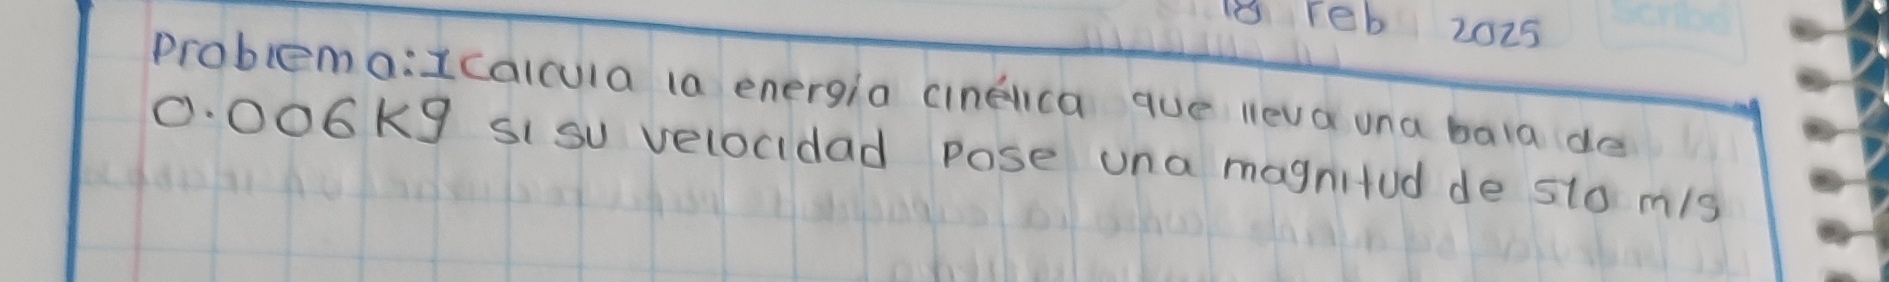 18 Feb 2025
Scribe
Problema:1 calcula la energía cinética que lleva una bala de
0.006 kg si su velocidad pose una magnitud de 510 m/s